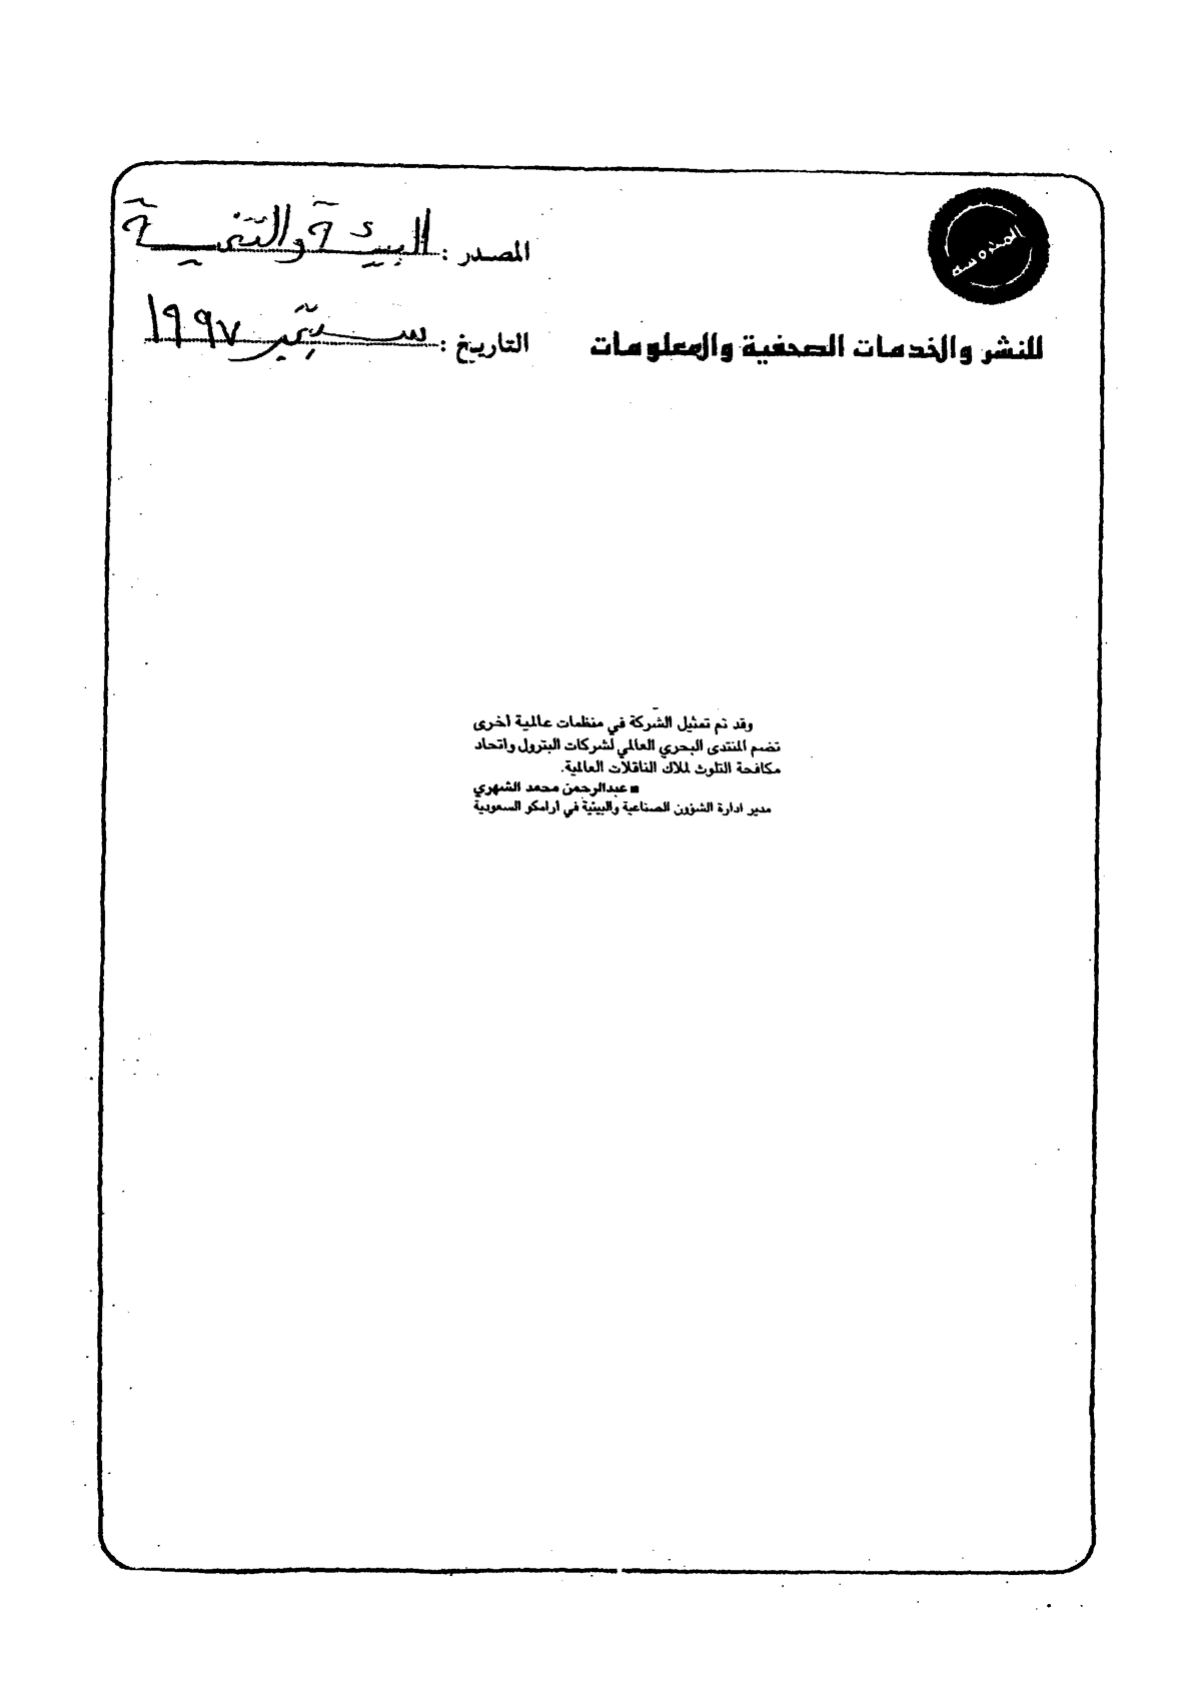 المحروسة
المصدر : البيئة والتنمية
للنشر والخدمات الصحفية والمعلومات
التاريخ : سبتمبر ١٩٩٧
وقد تم تمثيل الشركة في منظمات عالمية أخرى
تضم المنتدى البحري العالمي لشركات البترول واتحاد
مكافحة التلوث لملاك الناقلات العالمية.
■ عبدالرحمن محمد الشهري
مدير ادارة الشؤون الصناعية والبيئية في أرامكو السعودية